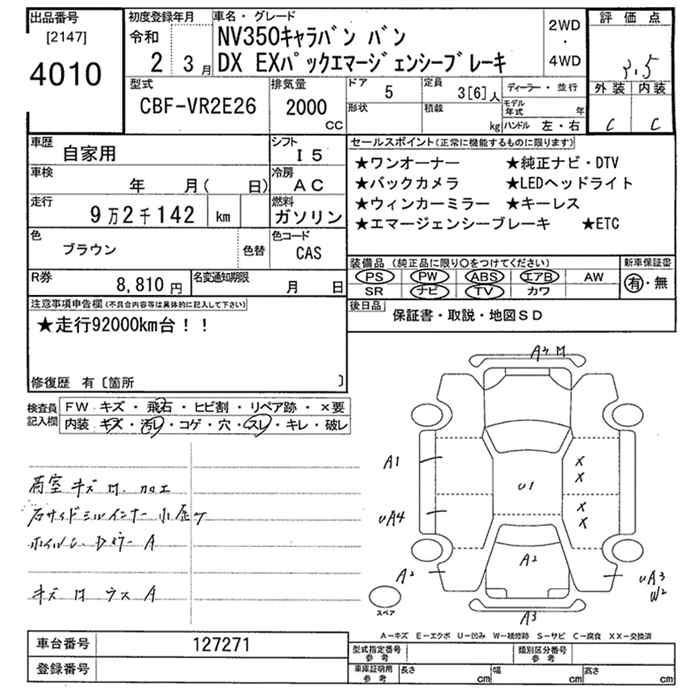 出品番号
[2147]
4010
初度登録年月
令和
2 3月
車名・グレード
NV350キャラバン バン
DX EXパックエマージェンシーブレーキ
2WD
・
4WD
評価点
3.5
外装 内装
C C
型式
CBF-VR2E26
排気量
2000
CC
ドア
5
形状
定員
3[6]人
積載
kg
ディーラー・並行
モデル年式 年
ハンドル 左・右
車歴
自家用
シフト
I5
車検
年 月( 日)
冷房
AC
走行
9万2千142 km
燃料
ガソリン
色
ブラウン
色替
色コード
CAS
R券
8,810円
名変通知期限
月 日
セールスポイント(正常に機能するものに限ります)
★ワンオーナー ★純正ナビ・DTV
★バックカメラ ★LEDヘッドライト
★ウィンカーミラー ★キーレス
★エマージェンシーブレーキ ★ETC
装備品(純正品に限り○をつけてください)
新車保証書
PS PW ABS エアB AW
SR ナビ TV カワ
有・無
後日品
保証書・取説・地図SD
注意事項申告欄(不具合内容等は具体的に記入して下さい)
★走行92000km台!!
修復歴 有〔箇所 〕
検査員記入欄
FW キズ・飛石・ヒビ割・リペア跡・×要
内装 キズ・汚レ・コゲ・穴・スレ・キレ・破レ
荷室キズ
A
キズ ウス A
A4
A1
UA4
U1
X
X
X
X
A2
A2
UA3
W2
A3
スペア
A-キズ E-エクボ U-凹み W-補修跡 S-サビ C-腐食 XX-交換済
車台番号
127271
登録番号
型式指定番号
参考
類別区分番号
参考
車庫証明用
参考
長さ cm
幅 cm
高さ cm